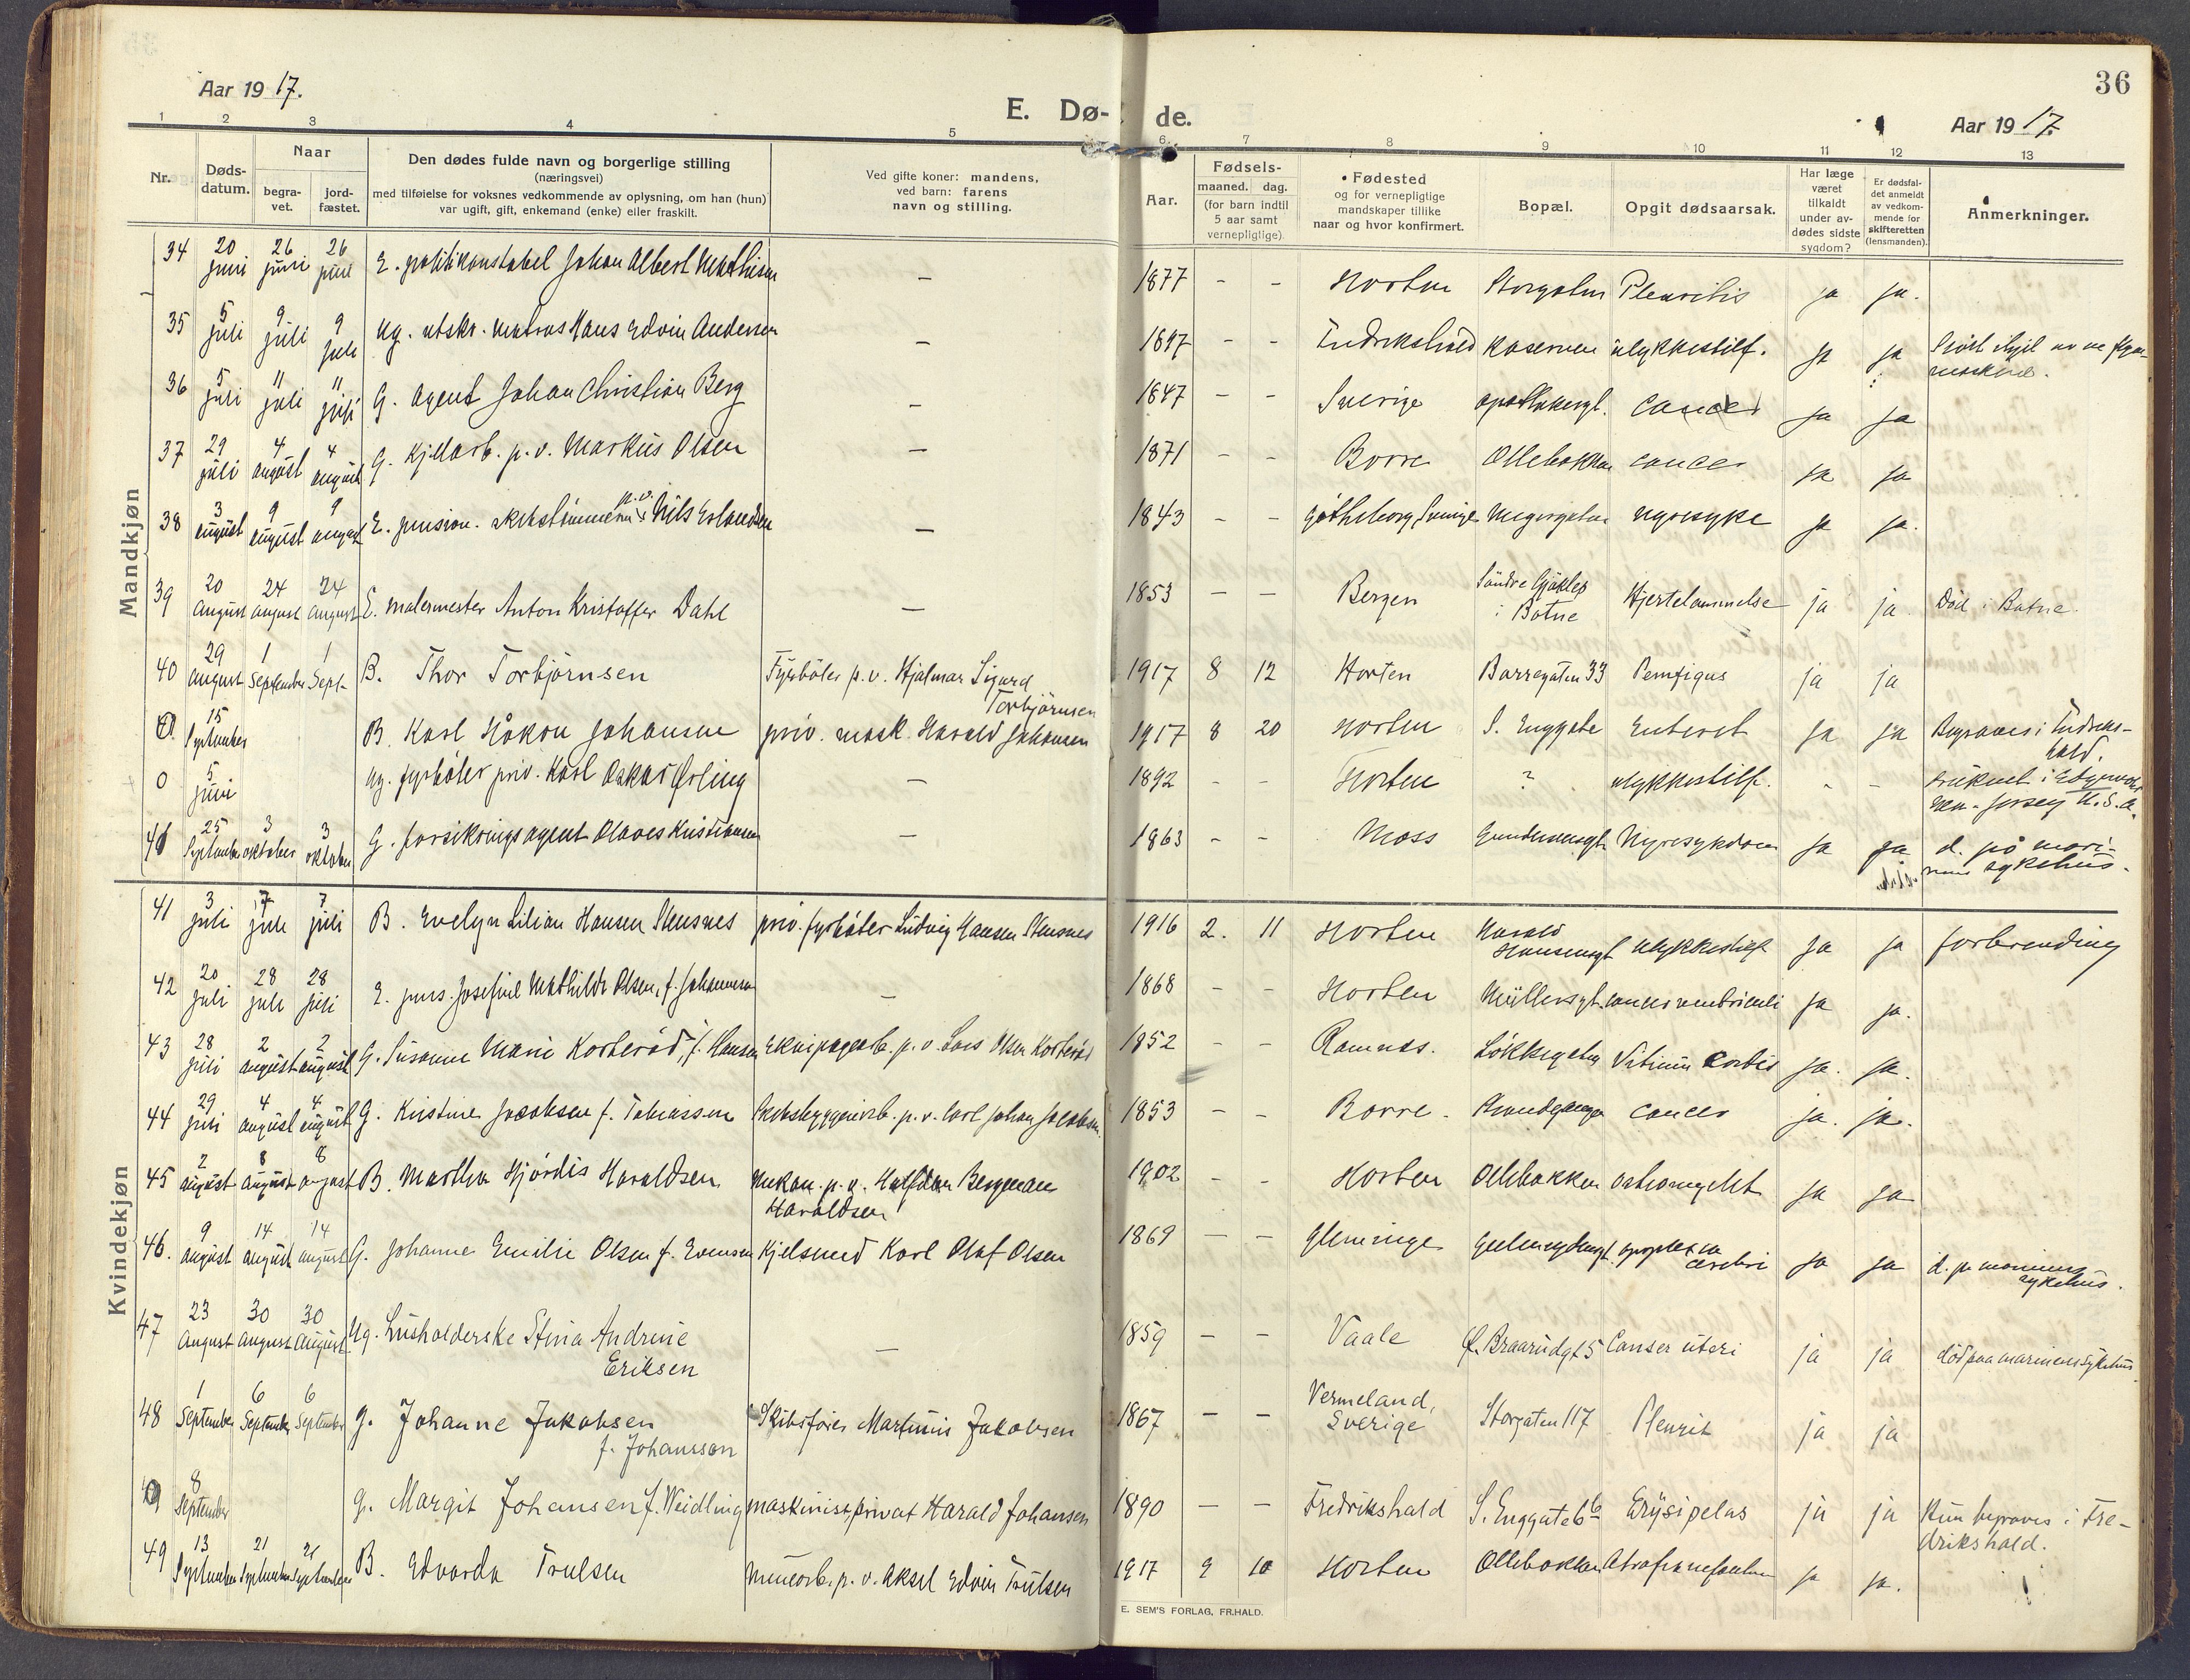 36
Aar 1917.
E. Dø-
de.
Aar 1917.
1 2 3 4 5 6 7 8 9 10 11 12 13
Nr.
Døds-
datum.
Naar
begra-
vet.
jord-
fæstet.
Den dødes fulde navn og borgerlige stilling
(næringsvei)
med tilføielse for voksnes vedkommende av oplysning, om han (hun)
var ugift, gift, enkemand (enke) eller fraskilt.
Ved gifte koner: mandens,
ved barn: farens
navn og stilling.
Aar.
Fødsels-
maaned. dag.
(for barn indtil
5 aar samt
vernepligtige)
Fødested
og for vernepligtige
mandskaper tillike
naar og hvor konfirmert.
Bopæl.
Opgit dødsaarsak.
Har læge
været
tilkaldt
under av-
dødes sidste
sygdom?
Er dødsfal-
det anmeldt
av vedkom-
mende for
skifteretten
(lensmanden).
Anmerkninger.
Mandkjøn
34 20 juni 26 juni 26 juni E. politikonstabel Johan Albert Mathisen — 1877 - - Horten Storgaten Pleuritis ja ja.
35 5 juli 9 juli 9 juli ug. utskr. matros Hans Edvin Andersen — 1897 - - Fredrikshald Kasernen ulykkestilf. ja ja
36 5 juli 11 juli 11 juli G. agent Johan Christian Berg — 1847 - - Sverige apothekergt. cancer ja ja
37 29 juli 4 august 4 august G. kjelarb. p. v. Markus Olsen — 1871 - - Borre Ollebakken cancer ja ja
38 3 august 9 august 9 august E. pension. skibstømmerm. p. v. Nils Erlandsen — 1843 - - Gøtheborg, Sverige nyresyke ja ja.
39 20 August 24 august 24 August E. malermester Anton Kristoffer Dahl — 1853 — — Bergen Søndre Gjøklep
i Botne Hjertelammelse ja ja. Död i Botne.
40 29 August 1 September 1 Sept. B. Thor Torbjörnsen Fyrböter p. v. Hjalmar Sigurd
Torbjörnsen 1917 8 12 Horten Borregaten 33 Pemfigus ja ja
0 15 September B. Karl Håkon Johansen priv. mask. Harald Johansen 1917 8 20 Horten S. Enggate Enterit ja ja Begraves i Fredriks-
hald.
0 5 juni ug. fyrbøter priv. Karl Oskar Ørling — 1892 - - Horten ? ulykkestilf. - - druknet i
New-Jersey U.S.A.
41 25 September 3 oktober 3 oktober G. forsikringsagent Olaves Kristiansen — 1863 - - Moss Gundersensgt. Nyresykdom ja ja d. på mari-
nens sykehus.
Kvindekjøn
41 3 juli 7 juli 7 juli B. Evelyn Lilian Hansen Stensnes priv. fyrbøter Ludvig Hansen Stensnes 1916 2. 11 Horten Harald
Hansensgt ulykkestilf ja ja forbrending
42 20 juli 28 juli 28 juli E. pens. Josefine Mathilde Olsen, f. Johannesen — 1868 - - Horten Müllersgt. cancer ventriculi ja ja.
43 28 juli 2 august 2 august G. Susanne Marie Korterød, f. Hansen Ekvipagearb. p. v. Lars Olsen Korterød 1852 - - Ramnes. Løkkegaten Vitium cordis ja. ja.
44 29 juli 4 august 4 august G. Kristine Jacobsen f. Tobiassen Skibsbyggeriarb. p. v. Carl Johan Jacobsen. 1853 - - Borre. Strandgangen cancer ja. ja.
45 2 august 8 august 8 august B. Martha Hjørdis Haraldsen mekan. p. v. Halfdan Bergman
Haraldsen 1902 - - Horten Ollebakken ostiomyelit ja ja
46. 9 august 14 august 14 august G. Johanne Emilie Olsen f. Evensen Kjelsmed Karl Olaf Olsen 1869 — — Glemminge apoplexia
cerebri ja ja d. på marinens
sykehus.
47 23 August 30 August 30 August Ug. Husholderske Stina Andrine
Eriksen — 1859 — — Vaale Braarudgt 5 Canser uteri ja ja död paa marinens sykehus
48 1 September 6 September 6 September g. Johanne Jakobsen
f. Johansson Skibsförer Martinius Jakobsen 1867 — — Vermeland,
Sverige Storgaten 117 Pleurit ja ja
0 8 September g. Margit Johansen f. Weidling maskinist, privat Harald Johansen 1890 — — Fredrikshald S. Enggate 6b Erysipelas ja ja Kun begraves i Fre-
drikshald.
49 13 September 21 September 21 September B. Edvarda Trulsen minearb. p. v. Aksel Edvin Trulsen 1917 9 10 Horten Ollebakken ja ja.
E. SEM'S FORLAG, FR.HALD.